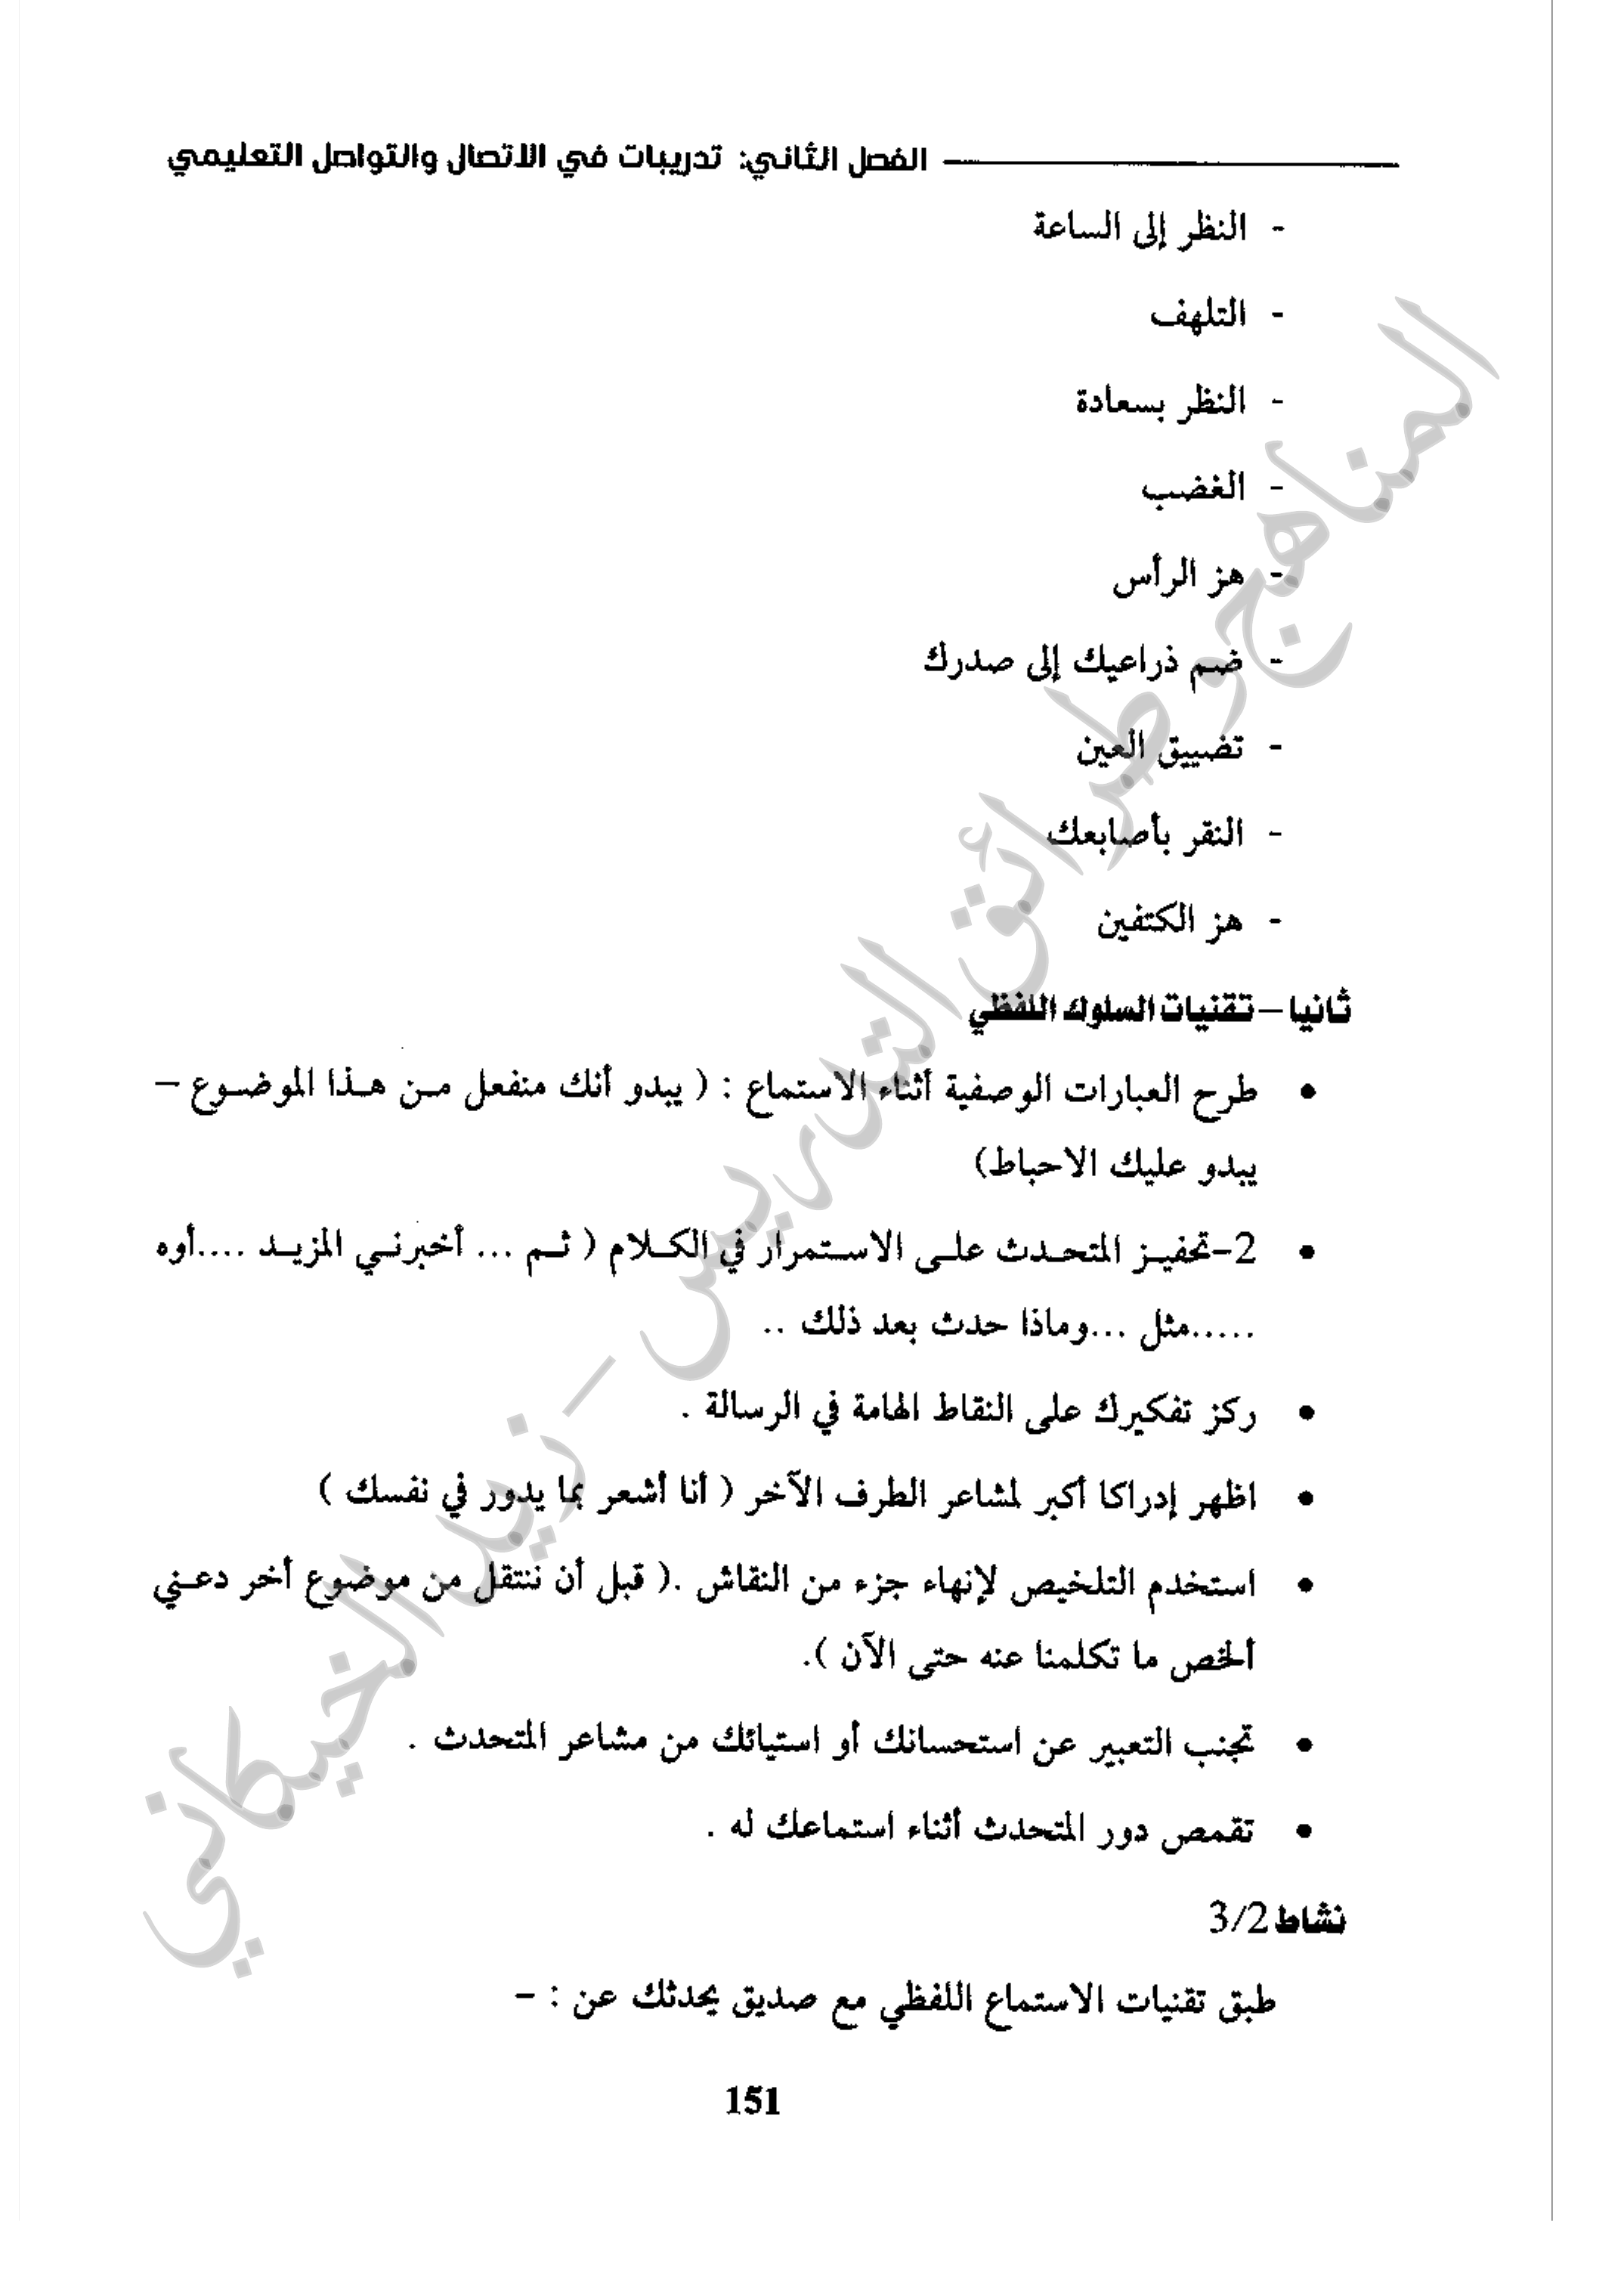 الفصل الثاني: تدريبات في الاتصال والتواصل التعليمي
- النظر إلى الساعة
- التلهف
- النظر بسعادة
- الغضب
- هز الرأس
- ضم ذراعيك إلى صدرك
- تضييق العين
- النقر بأصابعك
- هز الكتفين
ثانيا – تقنيات السلوك اللفظي
• طرح العبارات الوصفية أثناء الاستماع : ( يبدو أنك منفعل من هذا الموضوع –
يبدو عليك الاحباط)
• 2-تحفيز المتحدث على الاستمرار في الكلام ( ثم ... أخبرني المزيد ....أوه
.....مثل ...وماذا حدث بعد ذلك ..
• ركز تفكيرك على النقاط الهامة في الرسالة .
• اظهر إدراكا أكبر لمشاعر الطرف الآخر ( أنا أشعر بما يدور في نفسك )
• استخدم التلخيص لإنهاء جزء من النقاش .( قبل أن ننتقل من موضوع أخر دعني
ألخص ما تكلمنا عنه حتى الآن ).
• تجنب التعبير عن استحسانك أو استيائك من مشاعر المتحدث .
• تقمص دور المتحدث أثناء استماعك له .
نشاط 3/2
طبق تقنيات الاستماع اللفظي مع صديق يحدثك عن : –
151
المناهج وطرائق التدريس – زيد الخيكاني